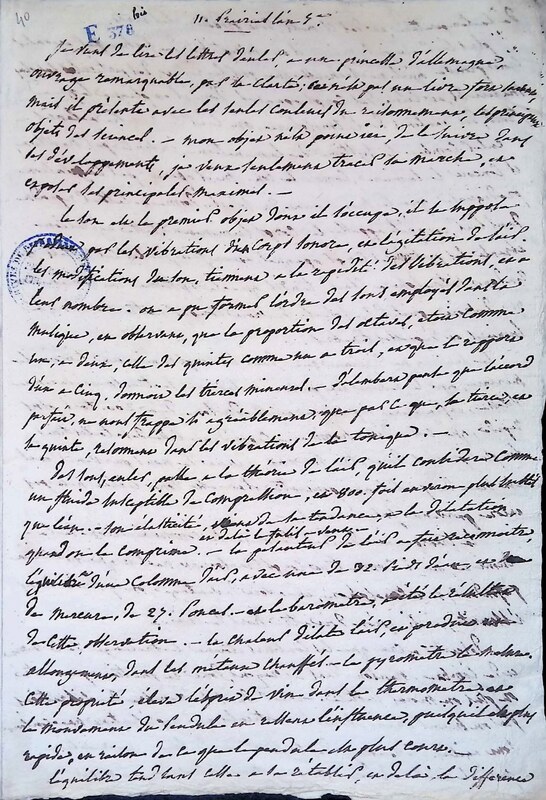 40
bis
E 378
11. Prairial l'an 5e
Je viens de lire les lettres d'euler a une princesse d'allemagne,
ouvrage remarquable, par la clarté; ce n'est pas un livre fort
mais il présente avec les seules couleurs du raisonnement, les principaux
objets des sciences. — mon objet n'est point ici, de le suivre dans
ses développements, je veux seulement tracer sa marche, et
exposer ses principales maximes. —
le son est le premier objet dont il s'occupe, il le suppose
par les vibrations d'un corps sonore, et l'agitation de l'air
les modifications du son, tiennent a la rapidité des vibrations, et a
leur nombre. on a pu former l'ordre des sons employés dans la
musique, en observant, que la proportion des octaves, etoit comme
un, a deux, celle des quintes comme un a trois, et que le rapport
d'un a cinq, donnoit les tierces mineures. — d'alembert pense que l'accord
parfait, ne nous frappe si agréablement, que par ce que, la tierce, et
la quinte, résonnent dans les vibrations de la tonique. —
des sons, euler, passe a la théorie de l'air, qu'il considère comme
un fluide susceptible de compression, et 800. fois environ plus subtil
que l'eau. — son élasticité, vient de sa tendance, a la dilatation
quand on le comprime. — la pesanteur de l'air a fait reconnoitre
l'équilibre d'une colonne d'air, avec une de 32. pieds d'eau, et de
de mercure, de 27. pouces. — et le baromètre, a été le résultat
de cette observation. — la chaleur dilate l'air, et produit un
allongement, dans les métaux chauffés. — le pyromètre le mesure.
Cette propriété, eleve l'esprit de vin dans le thermomètre et
le mouvement du pendule en ressent l'influence, puisqu'il est plus
rapide, en raison de ce que le pendule est plus court. —
l'équilibre tend sans cesse a se rétablir, et de là la différence